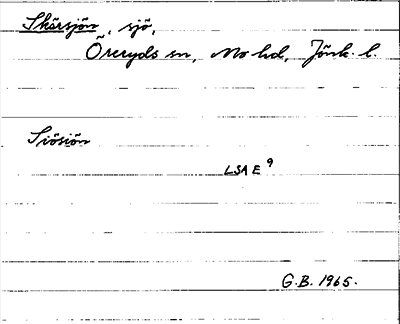 Skärsjön, sjö,
Öreryds sn, Mo hd, Jönk. l.
Siösiön
LSA E 9
G.B. 1965.